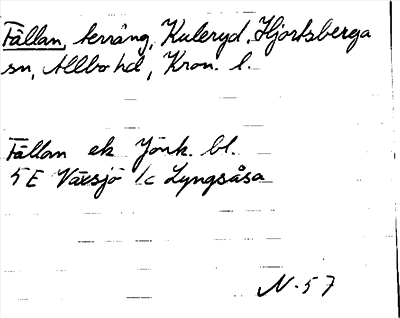 Fällan, terräng, Kuleryd, Hjortsberga
sn, Allbo hd, Kron. l.
Fällan ek Jönk. bl.
5E Växsjö 1c Lyngsåsa
N-57